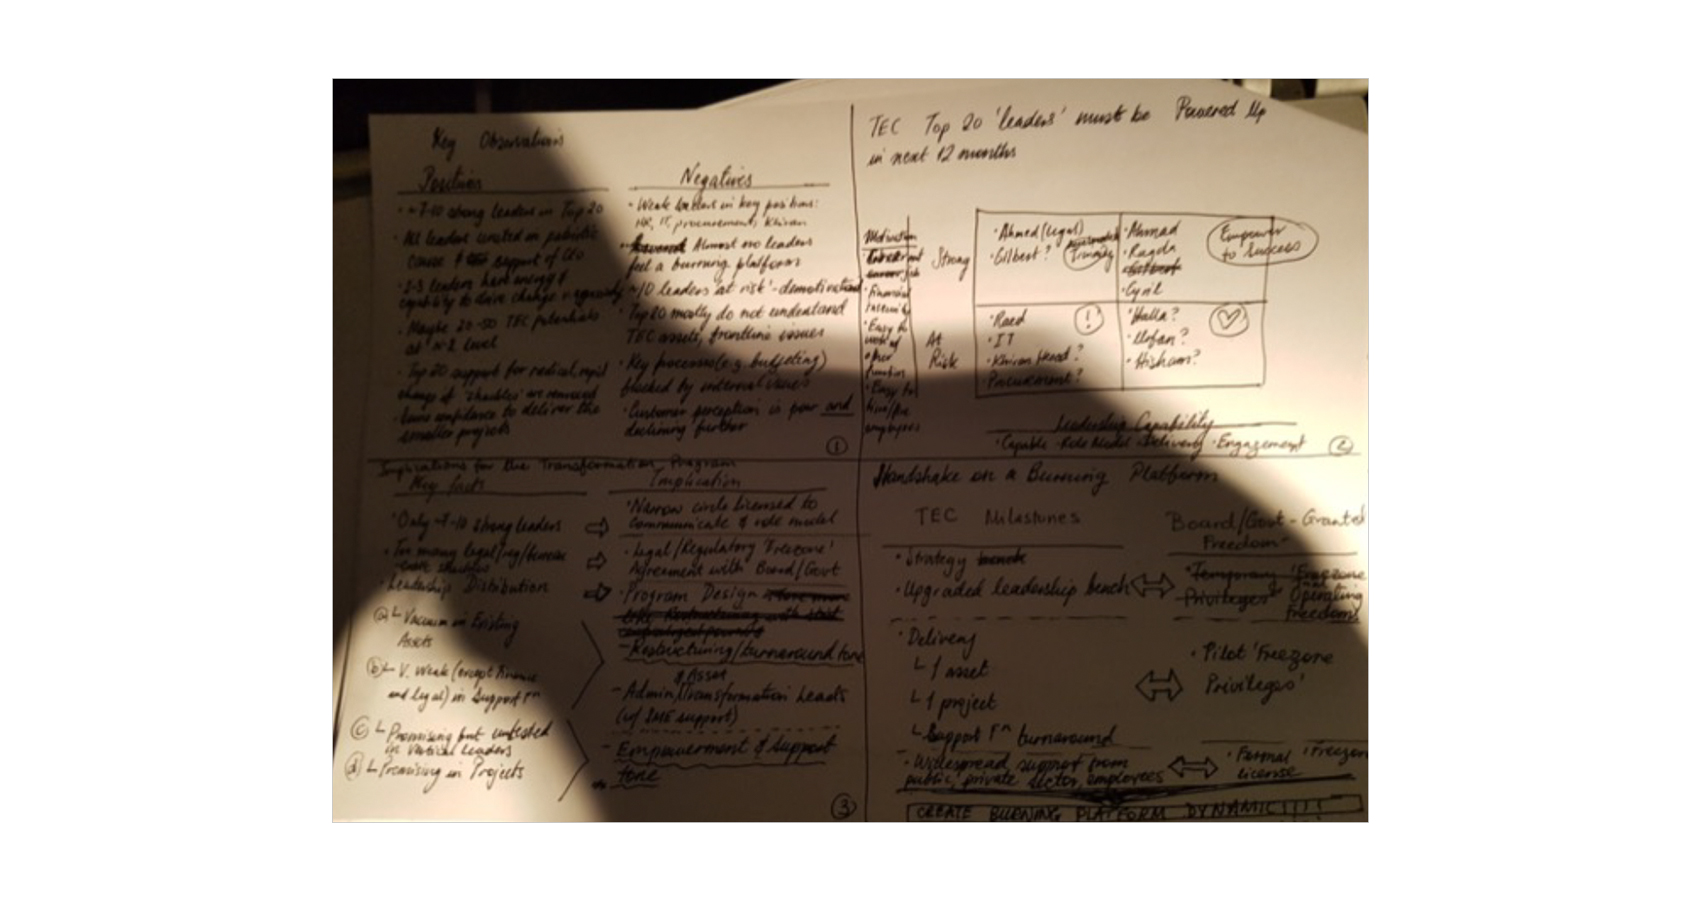 Key Observations
Positives
• ~7-10 strong leaders in Top 20
• All leaders united in patriotic
cause & support of CEO
• 2-3 leaders have energy &
capability to drive change vigorously
• Maybe 20-50 TEC potentials
at N-2 level
• Top 20 support for radical, rapid
change if 'shackles' are removed
• Some confidence to deliver the
smaller projects
Negatives
• Weak leaders in key positions:
HR, IT, procurement, Khiran
• Almost no leaders
feel a burning platform
• ~10 leaders 'at risk' - demotivated
• Top 20 mostly do not understand
TEC assets, frontline issues
• Key processes (e.g. budgeting)
blocked by external issues
• Customer perception is poor and
declining further
1
TEC Top 20 'leaders' must be Powered Up
in next 12 months
Motivation
• Financial
insecurity
• Easy to
• Easy to
hire/fire
employees
Strong
At
Risk
• Ahmed (Legal)
• Gilbert?
Training
• Ahmad
• Ragda
• Cyril
Empower
to Success
• Raed
• IT
• Khiran Head?
Procurement?
!
• Halla?
• Hisham?
Leadership Capability
• Capable • Role Model • Delivery • Engagement
2
Implications for the Transformation Program
Key facts
Implication
• Only ~7-10 strong leaders
• Narrow circle licensed to
communicate & role model
• Too many legal/reg/
shackles
• Legal/Regulatory 'Freezone'
Agreement with Board/Govt
• Leadership Distribution
• Program Design
(a) Vacuum in Existing
Assets
(b) V. Weak (except finance
and legal) in Support Fn
(c) Promising but untested
in vertical leaders
(d) Promising in Projects
- Restructuring/turnaround tone
- Admin/Asset Transformation Leads
(w/ SME support)
- Empowerment & Support
tone
3
Handshake on a Burning Platform
TEC Milestones
Board/Govt - Granted
Freedom
• Strategy
• Upgraded leadership bench
Operating
Freedom
• Delivery
1 asset
1 project
Support Fn turnaround
• Pilot 'Freezone
Privileges'
• Widespread support from
public, private sector, employees
• Formal 'Freezone
license
CREATE BURNING PLATFORM DYNAMIC!!!!